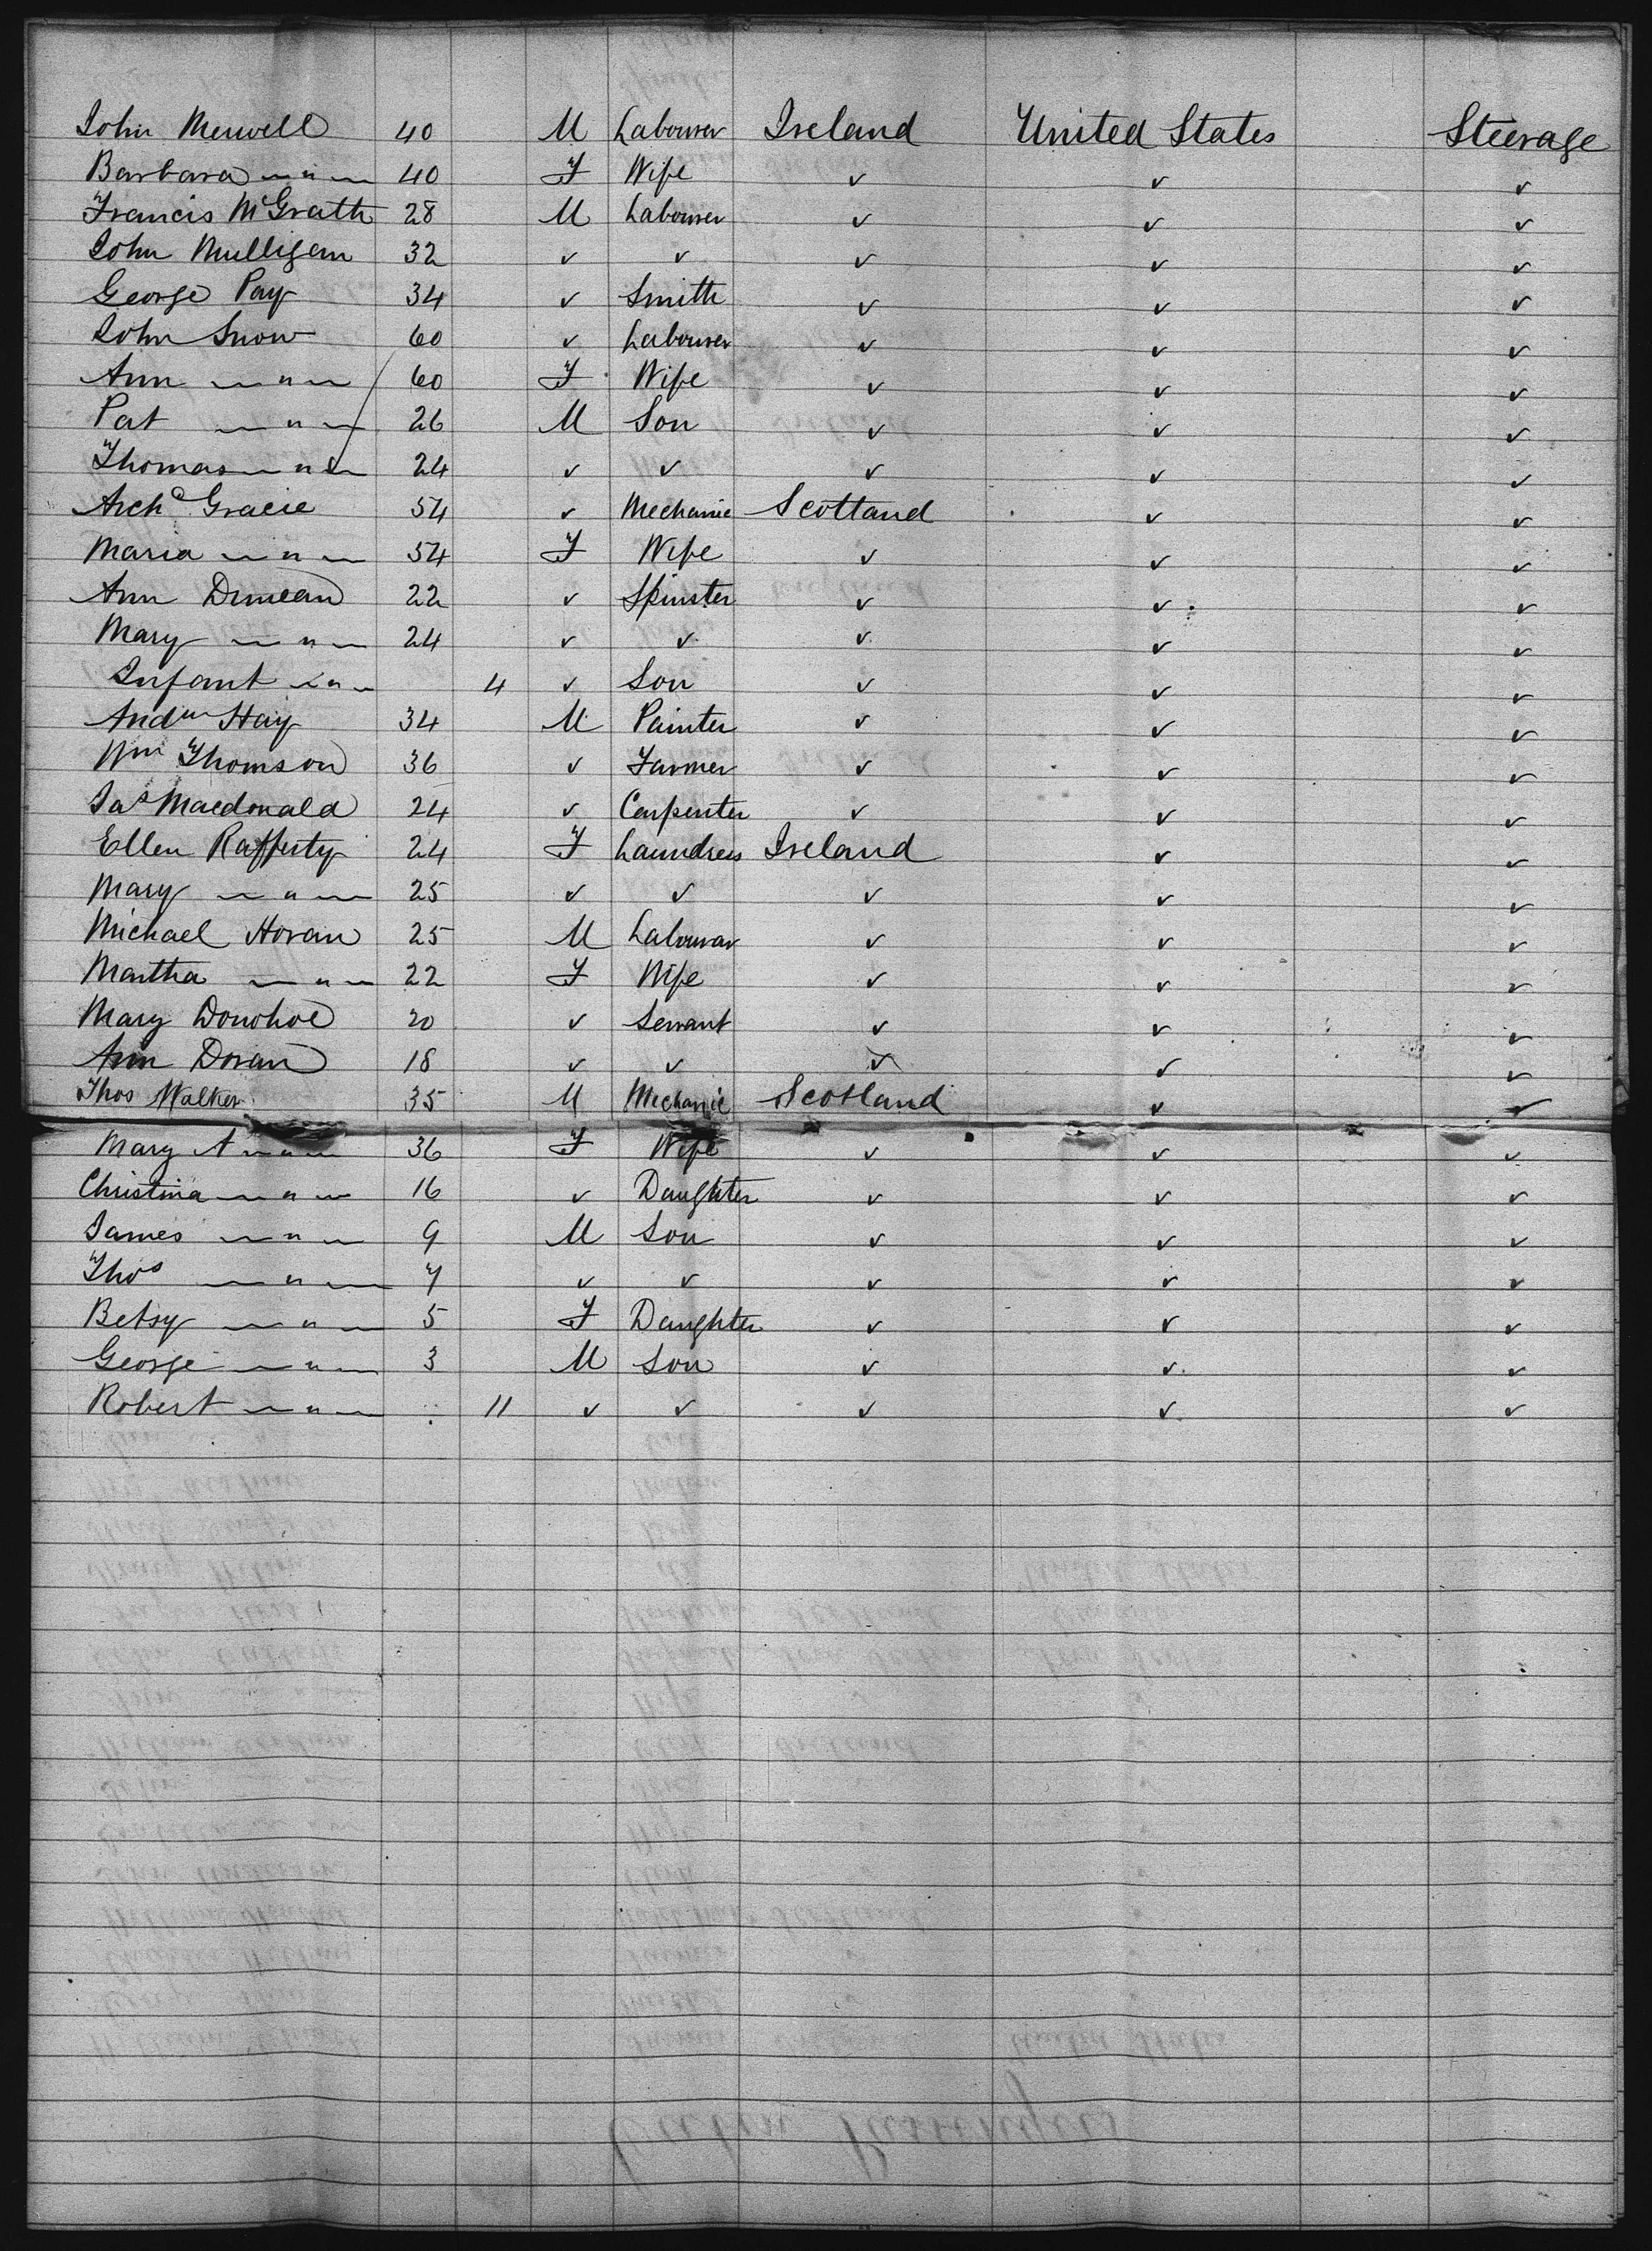 John Merwell 40 M Labourer Ireland United States Steerage
Barbara — " — 40 F Wife ✓ ✓ ✓
Francis McGrath 28 M Labourer ✓ ✓ ✓
John Mulligan 32 ✓ ✓ ✓ ✓ ✓
George Pay 34 ✓ Smith ✓ ✓ ✓
John Snow 60 ✓ Labourer ✓ ✓ ✓
Ann — " — 60 F Wife ✓ ✓ ✓
Pat — " — 26 M Son ✓ ✓ ✓
Thomas — " — 24 ✓ ✓ ✓ ✓ ✓
Archd Gracie 54 ✓ Mechanic Scotland ✓ ✓
Maria — " — 54 F Wife ✓ ✓ ✓
Ann Duncan 22 ✓ Spinster ✓ ✓ ✓
Mary — " — 24 ✓ ✓ ✓ ✓ ✓
Infant — " — 4 ✓ Son ✓ ✓ ✓
Andw Hay 34 M Painter ✓ ✓ ✓
Wm Thomson 36 ✓ Farmer ✓ ✓ ✓
Jas Macdonald 24 ✓ Carpenter ✓ ✓ ✓
Ellen Rafferty 24 F Laundress Ireland ✓ ✓
Mary — " — 25 ✓ ✓ ✓ ✓ ✓
Michael Horan 25 M Labourer ✓ ✓ ✓
Martha — " — 22 F Wife ✓ ✓ ✓
Mary Donohoe 20 ✓ Servant ✓ ✓ ✓
Ann Doran 18 ✓ ✓ ✓ ✓ ✓
Thos Walker 35 M Mechanic Scotland ✓ ✓
Mary A — " — 36 F Wife ✓ ✓ ✓
Christina — " — 16 ✓ Daughter ✓ ✓ ✓
James — " — 9 M Son ✓ ✓ ✓
Thos — " — 7 ✓ ✓ ✓ ✓ ✓
Betsy — " — 5 F Daughter ✓ ✓ ✓
George — " — 3 M Son ✓ ✓ ✓
Robert — " — 11 ✓ ✓ ✓ ✓ ✓